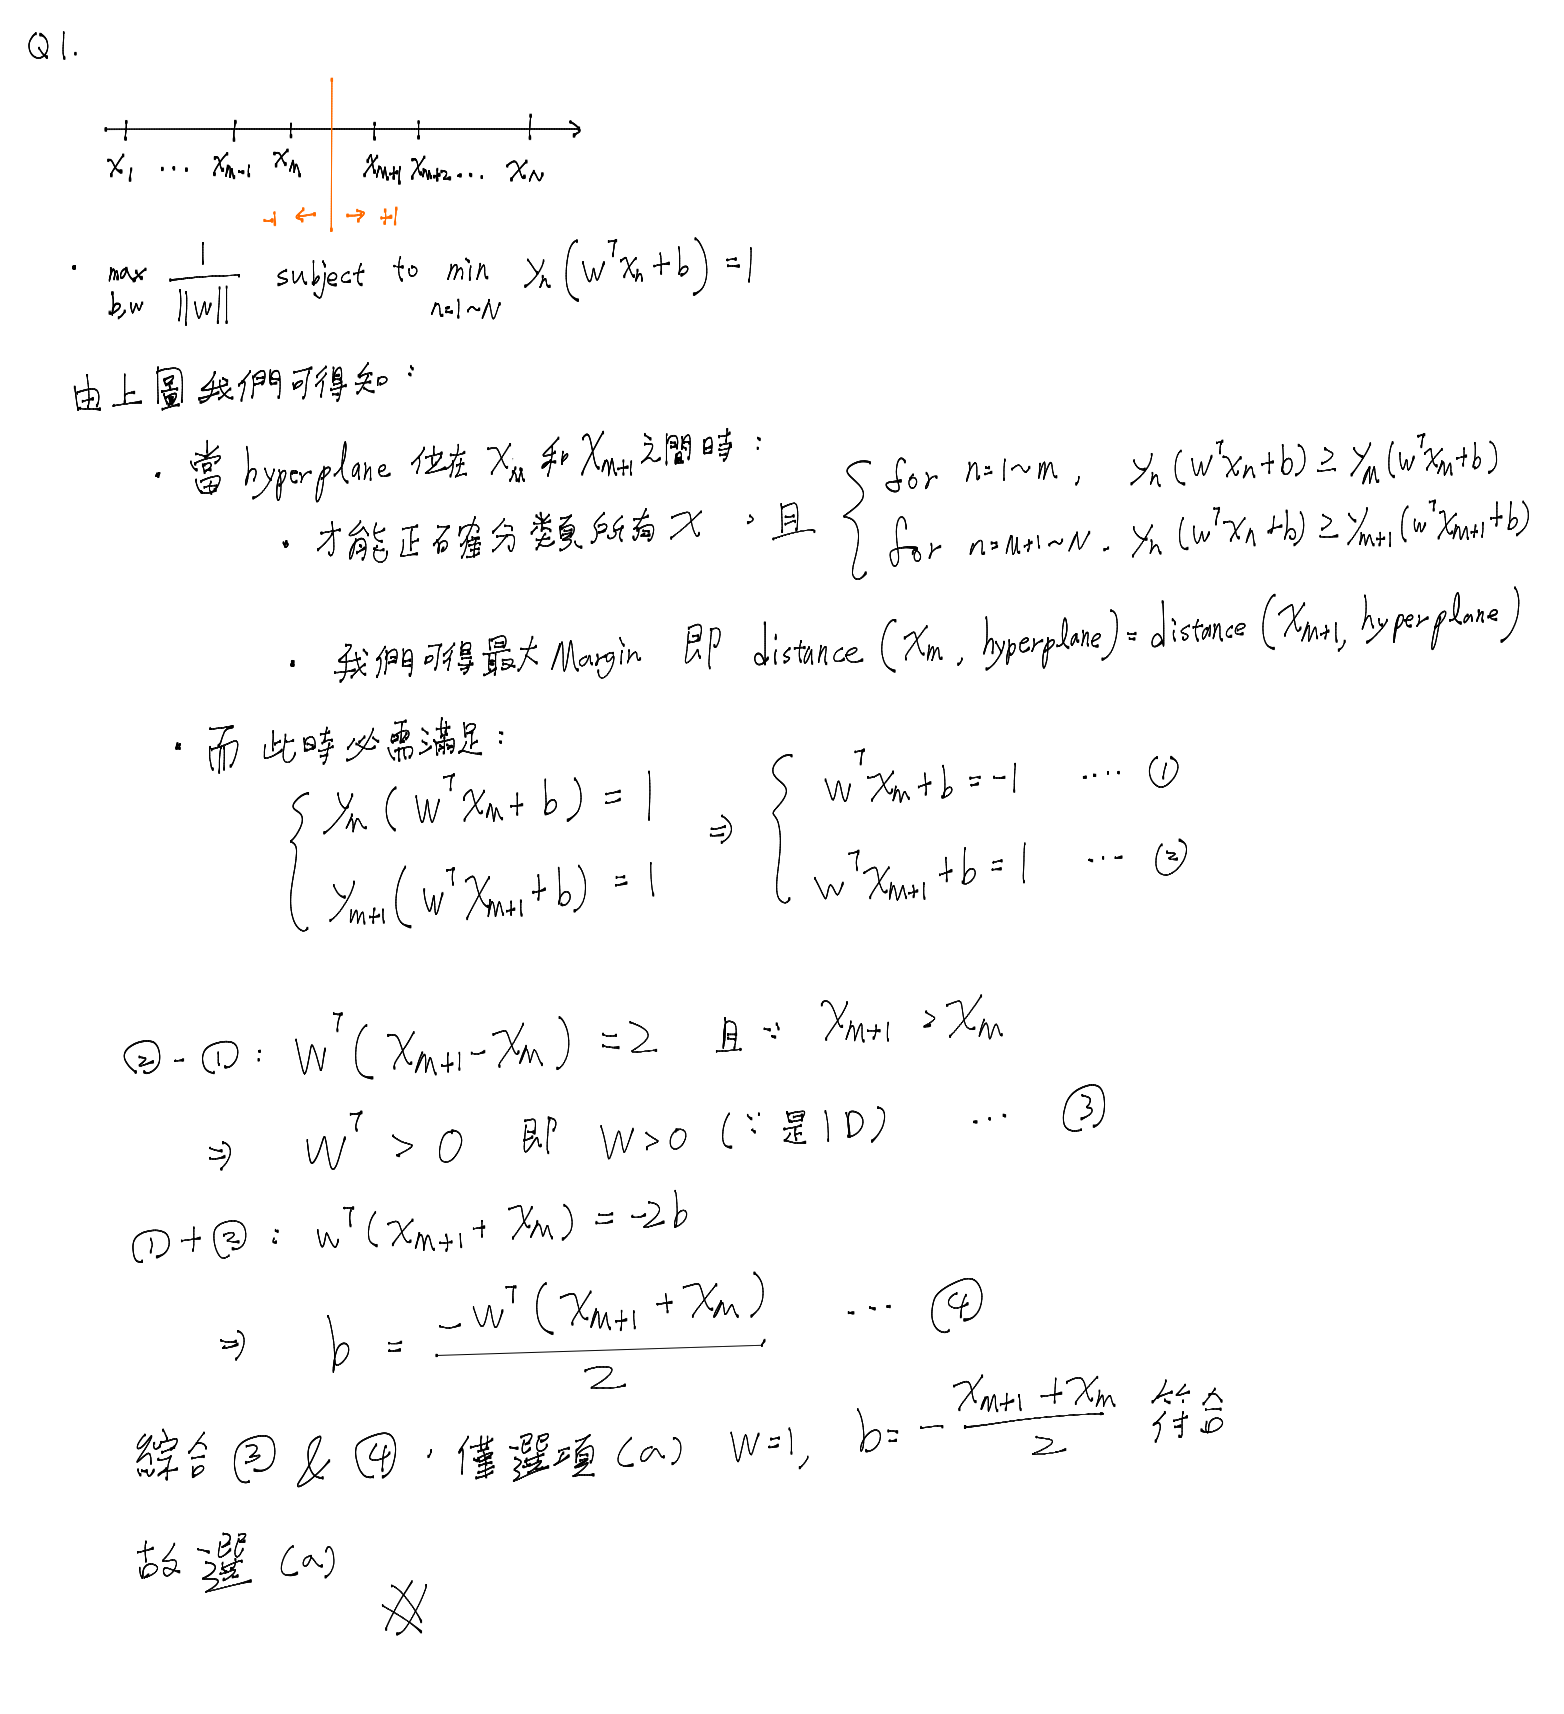 Q1.
x₁ ... xₘ₋₁ xₘ xₘ₊₁ xₘ₊₂ ... x_N
-1 ← → +1
· max_{b,w} 1/||w|| subject to min_{n=1~N} yₙ(wᵀxₙ+b) = 1
由上圖我們可得知:
· 當 hyperplane 位在 xₘ 和 xₘ₊₁ 之間時:
· 才能正確分類所有 x，且 { for n=1~m, yₙ(wᵀxₙ+b) ≥ yₘ(wᵀxₘ+b)
for n=m+1~N. yₙ(wᵀxₙ+b) ≥ yₘ₊₁(wᵀxₘ₊₁+b)
· 我們可得最大 Margin 即 distance (xₘ, hyperplane) = distance (xₘ₊₁, hyperplane)
· 而此時必需滿足:
{ yₘ(wᵀxₘ+b) = 1 ⇒ { wᵀxₘ+b = -1 .... ①
yₘ₊₁(wᵀxₘ₊₁+b) = 1 wᵀxₘ₊₁+b = 1 ... ②
② - ①: wᵀ(xₘ₊₁-xₘ) = 2 且 ∵ xₘ₊₁ > xₘ
⇒ wᵀ > 0 即 w>0 (∵是1D) ... ③
①+②: wᵀ(xₘ₊₁+xₘ) = -2b
⇒ b = -wᵀ(xₘ₊₁+xₘ)/2 ... ④
綜合 ③ & ④，僅選項(a) w=1, b= -(xₘ₊₁+xₘ)/2 符合
故選 (a)